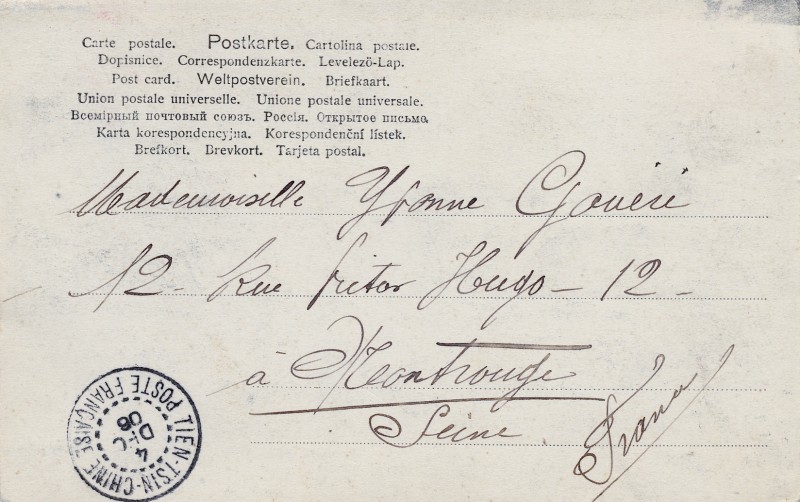 Carte postale. Postkarte. Cartolina postale.
Dopisnice. Correspondenzkarte. Levelező-Lap.
Post card. Weltpostverein. Briefkaart.
Union postale universelle. Unione postale universale.
Всемірный почтовый союзъ. Россія. Открытое письмо.
Karta korespondencyjna. Korespondenční lístek.
Brefkort. Brevkort. Tarjeta postal.
Mademoiselle Yvonne
12 - Rue Victor Hugo - 12 -
à Montrouge
Seine.
France
TIEN-TSIN-CHINE
POSTE FRANÇAISE
4
DEC
06